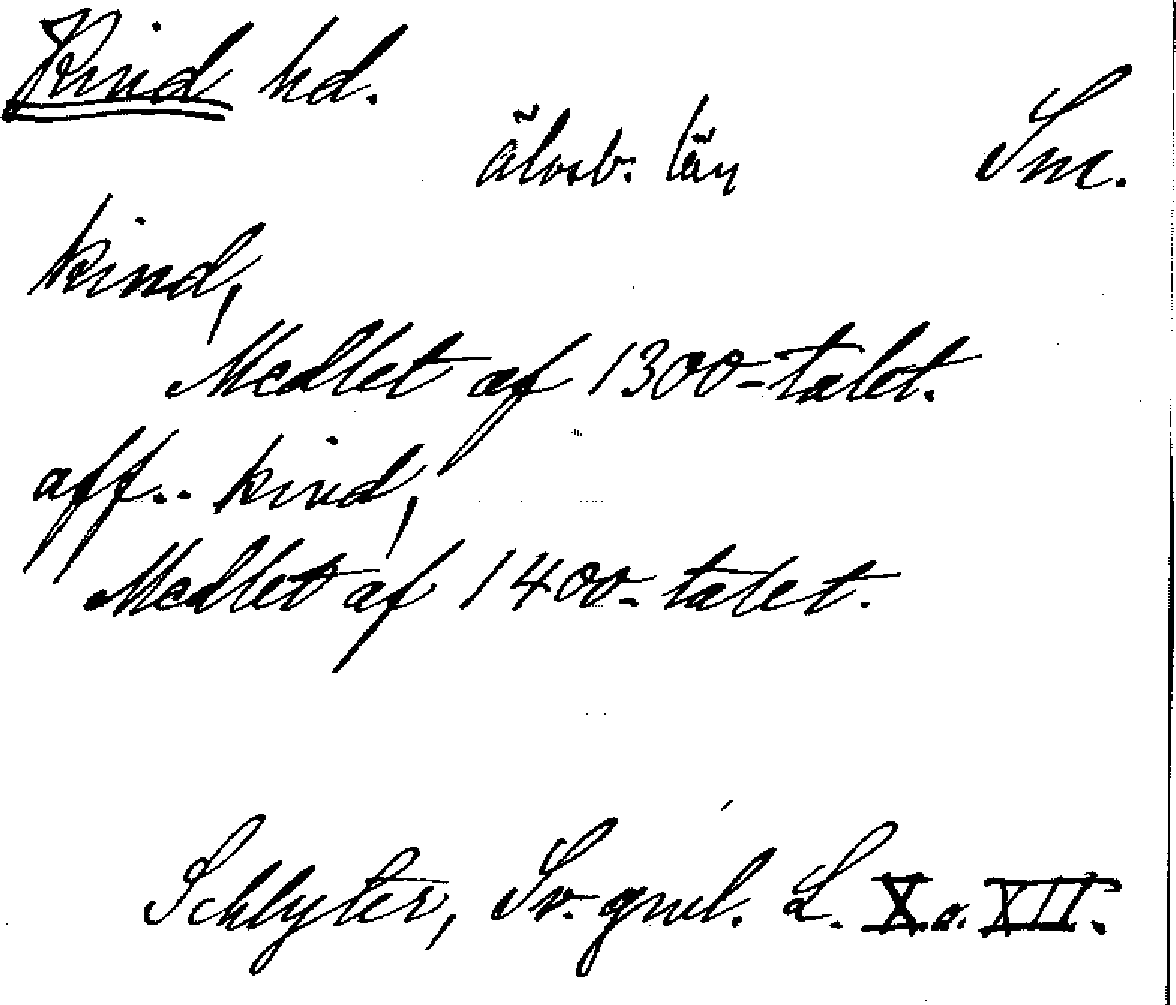 Kind hd.
Älvsb. län Sm.
kind,
Medlet af 1300-talet.
aff.. kind,
Medlet af 1400-talet.
Schlyter, Sv. gml. L. X. o. XII.